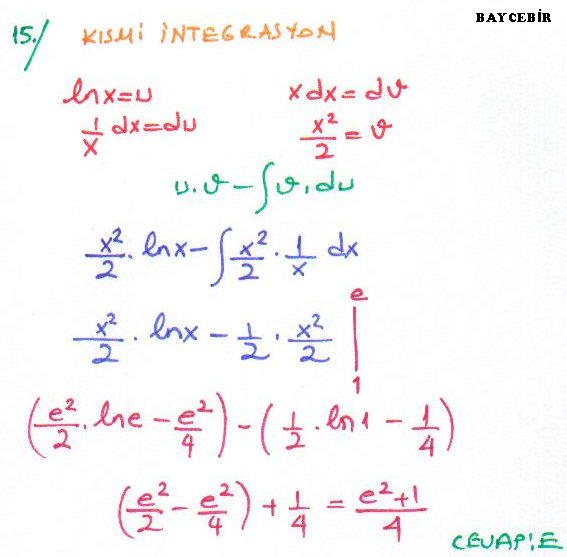 BAYCEBİR
15./ KISMİ İNTEGRASYON
lnx=u xdx=dv
1/x dx=du x²/2=v
u.v-∫v.du
x²/2.lnx-∫x²/2.1/x dx
x²/2.lnx-1/2.x²/2 |₁ᵉ
(e²/2.lne-e²/4)-(1/2.ln1-1/4)
(e²/2-e²/4)+1/4=e²+1/4
CEVAP:E